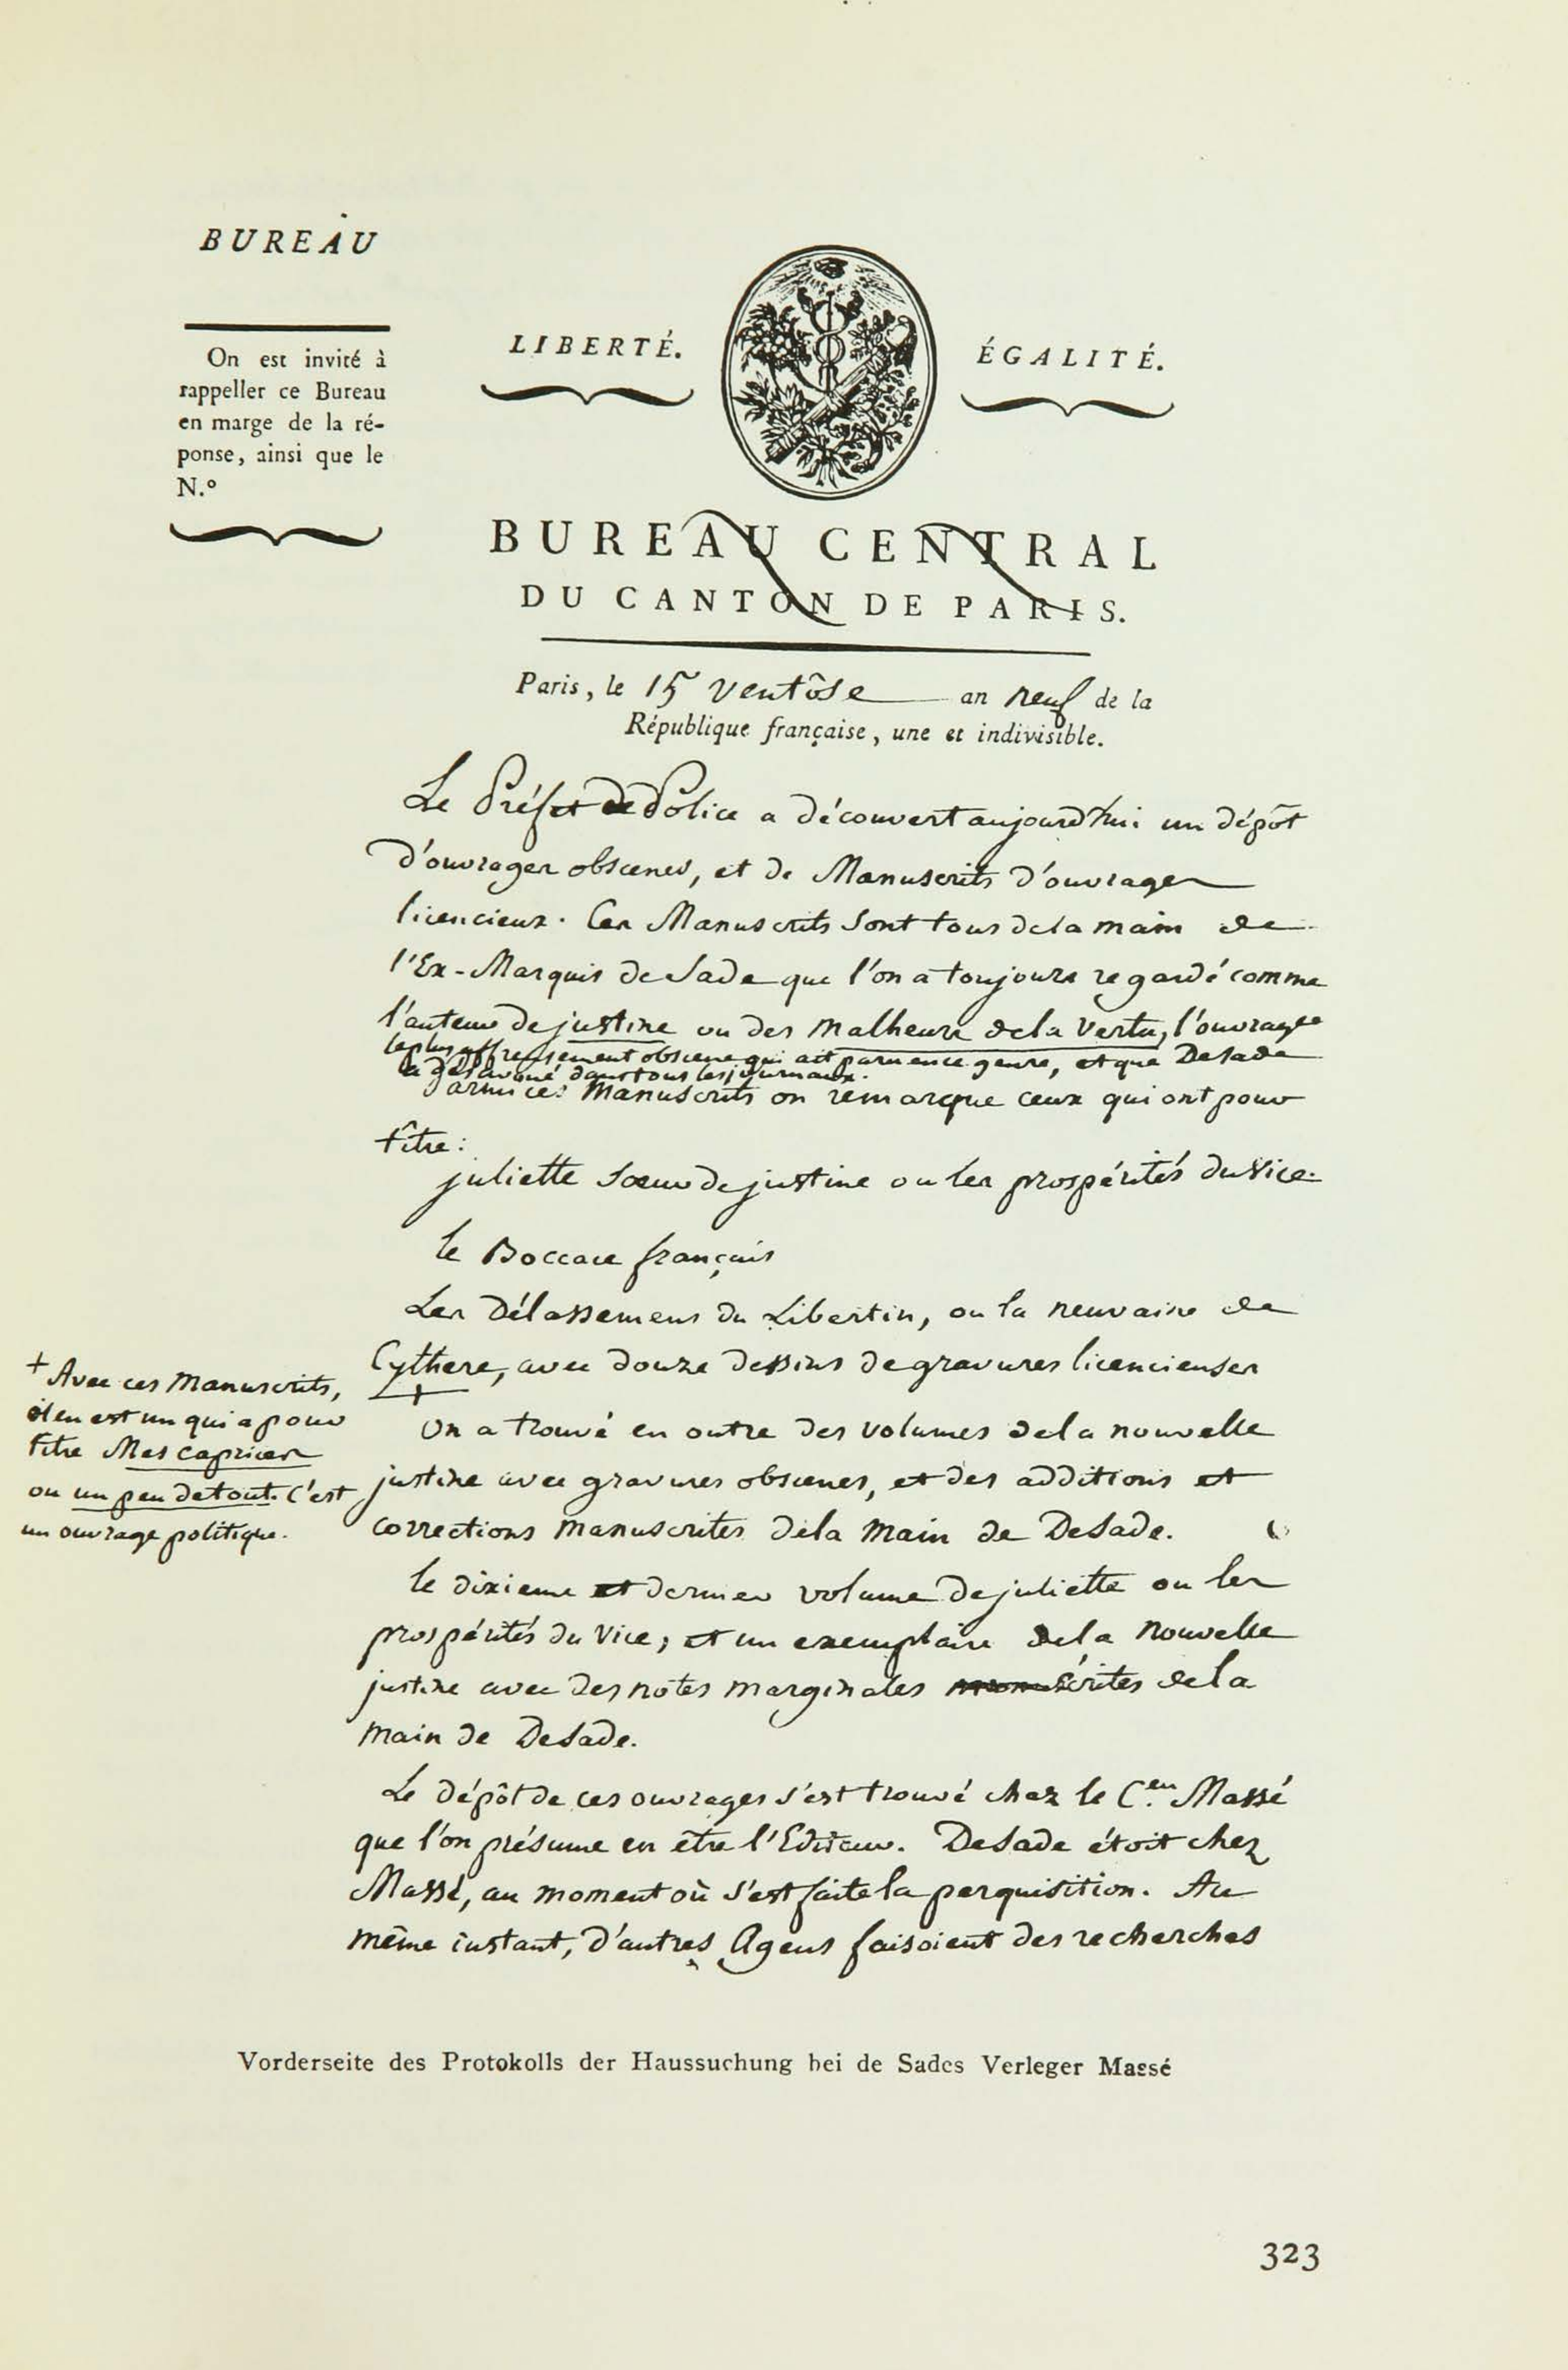 BUREAU
On est invité à
rappeller ce Bureau
en marge de la ré-
ponse, ainsi que le
N.º
LIBERTÉ.
ÉGALITÉ.
BUREAU CENTRAL
DU CANTON DE PARIS.
Paris, le 15 Ventôse an neuf de la
République française, une et indivisible.
Le Préfet de Police a découvert aujourd'hui un dépôt
d'ouvrages obscenes, et de Manuscrits d'ouvrages
licencieux. Ces Manuscrits sont tous de la main de
l'Ex-Marquis de Sade que l'on a toujours regardé comme
l'auteur de justine ou des Malheurs de la Vertu, l'ouvrage
le plus affreusement obscene qui ait paru en ce genre, et que DeSade
a désavoué dans tous les journaux.
Parmi ces Manuscrits on remarque ceux qui ont pour
titre :
juliette soeur de justine ou les prospérités du Vice.
le Boccace français
Les Délassemens du Libertin, ou la neuvaine de
Cythere, avec douze dessins de gravures licencieuses
+
+ Avec ces Manuscrits,
il en est un qui a pour
titre Mes caprices
ou un peu de tout. C'est
un ouvrage politique.
On a trouvé en outre des volumes de la nouvelle
justine avec gravures obscenes, et des additions et
corrections manuscrites de la main de DeSade.
le dixieme et dernier volume de juliette ou les
prospérités du Vice, et un exemplaire de la Nouvelle
justine avec des notes marginales écrites de la
main de DeSade.
Le dépôt de ces ouvrages s'est trouvé chez le C.en Massé
que l'on présume en être l'Editeur. DeSade étoit chez
Massé, au moment où s'est faite la perquisition. Au
même instant, d'autres Agens faisoient des recherches
Vorderseite des Protokolls der Haussuchung bei de Sades Verleger Massé
323